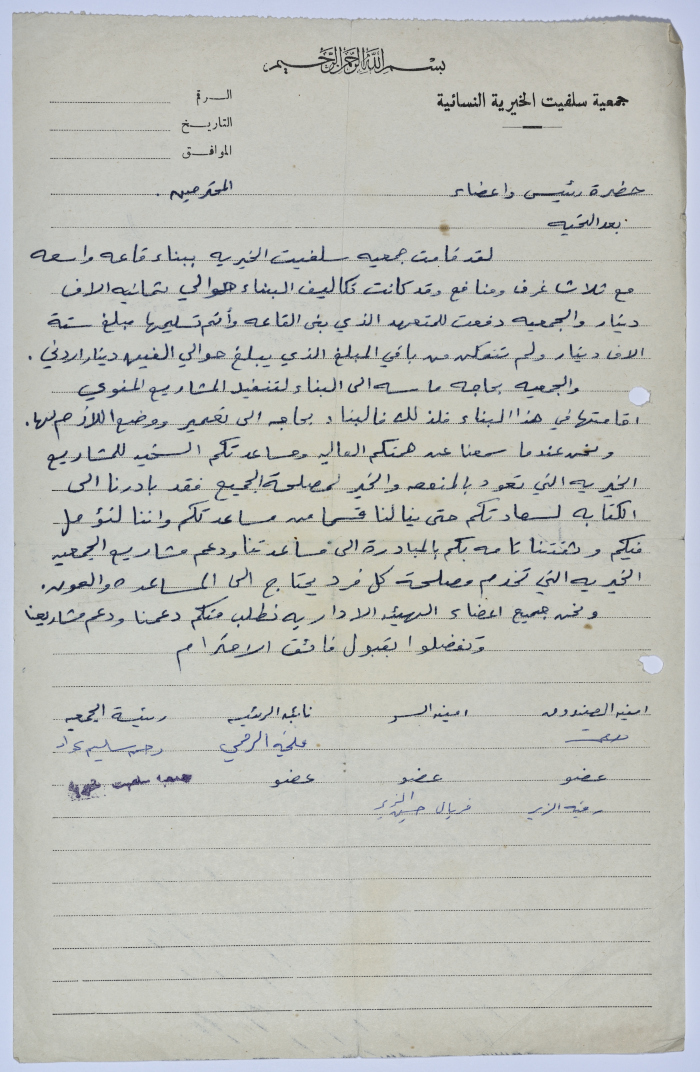 بسم الله الرحمن الرحيم
جمعية سلفيت الخيرية النسائية
الرقم
التاريخ
الموافق
حضرة رئيس واعضاء المحترمين .
بعد التحيه
لقد قامت جمعيه سلفيت الخيريه ببناء قاعه واسعه
مع ثلاث غرف ومنافع وقد كانت تكاليف البناء حوالي ثمانيه الاف
دينار والجمعيه دفعت للمتعهد الذي بنى القاعه وأتم تسليمها مبلغ ستة
الاف دينار ولم تتمكن من باقي المبلغ الذي يبلغ حوالي الفين دينار اردني .
والجمعيه بحاجه ماسه الى البناء لتنفيذ المشاريع المنوي
اقامتها في هذا البناء فلذلك فالبناء بحاجه الى تعمير ووضع اللازم لها .
ونحن عندما سمعنا عن همتكم العاليه ومساعدتكم السخيه للمشاريع
الخيريه التي تعود بالمنفعه والخير لمصلحة الجميع فقد بادرنا الى
الكتابه لسعادتكم حتى ينالنا قسما من مساعدتكم واننا لنؤمل
منكم وثقتنا تامه بكم بالمبادرة الى مساعدتنا ودعم مشاريع الجمعيه
الخيريه التي تخدم مصلحة كل فرد يحتاج الى المساعده والعون .
ونحن جميع اعضاء الهيئه الاداريه نطلب منكم دعمنا ودعم مشاريعنا
وتفضلوا بقبول فائق الاحترام
امينه الصندوق امينه السر نائبه الرئيسه رئيسة الجمعيه
سليم
عضو عضو عضو
الزير فريال حسين الزير